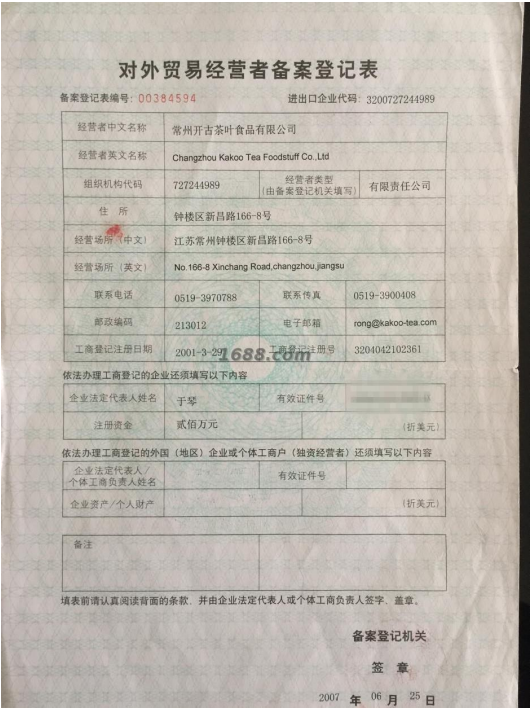 对外贸易经营者备案登记表
备案登记表编号: 00384594 进出口企业代码: 3200727244989
经营者中文名称 常州开古茶叶食品有限公司
经营者英文名称 Changzhou Kakoo Tea Foodstuff Co.,Ltd
组织机构代码 727244989 经营者类型 (由备案登记机关填写) 有限责任公司
住 所 钟楼区新昌路166-8号
经营场所(中文) 江苏常州钟楼区新昌路166-8号
经营场所(英文) No.166-8 Xinchang Road,changzhou,jiangsu
联系电话 0519-3970788 联系传真 0519-3900408
邮政编码 213012 电子邮箱 rong@kakoo-tea.com
工商登记注册日期 2001-3-29 工商登记注册号 3204042102361
1688.com
依法办理工商登记的企业还须填写以下内容
企业法定代表人姓名 于琴 有效证件号
注册资金 贰佰万元 (折美元)
依法办理工商登记的外国(地区)企业或个体工商户(独资经营者)还须填写以下内容
企业法定代表人/
个体工商负责人姓名 有效证件号
企业资产/个人财产 (折美元)
备注
填表前请认真阅读背面的条款,并由企业法定代表人或个体工商负责人签字、盖章。
备案登记机关
签 章
2007 年 06 月 25 日